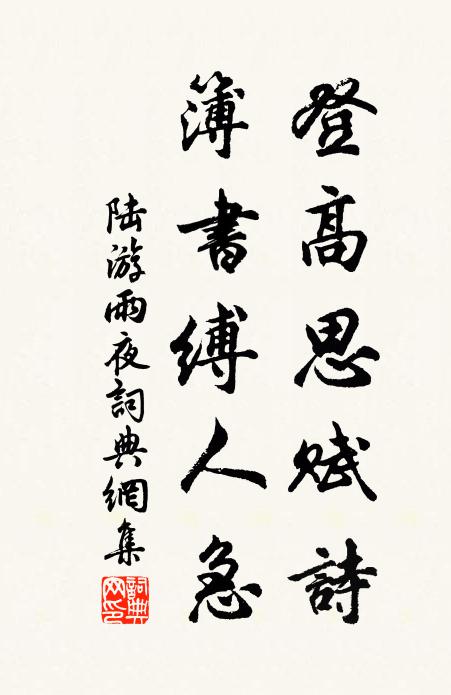 登高思賦詩
簿書縛人急
陸游雨夜詞典網集
詞典網印